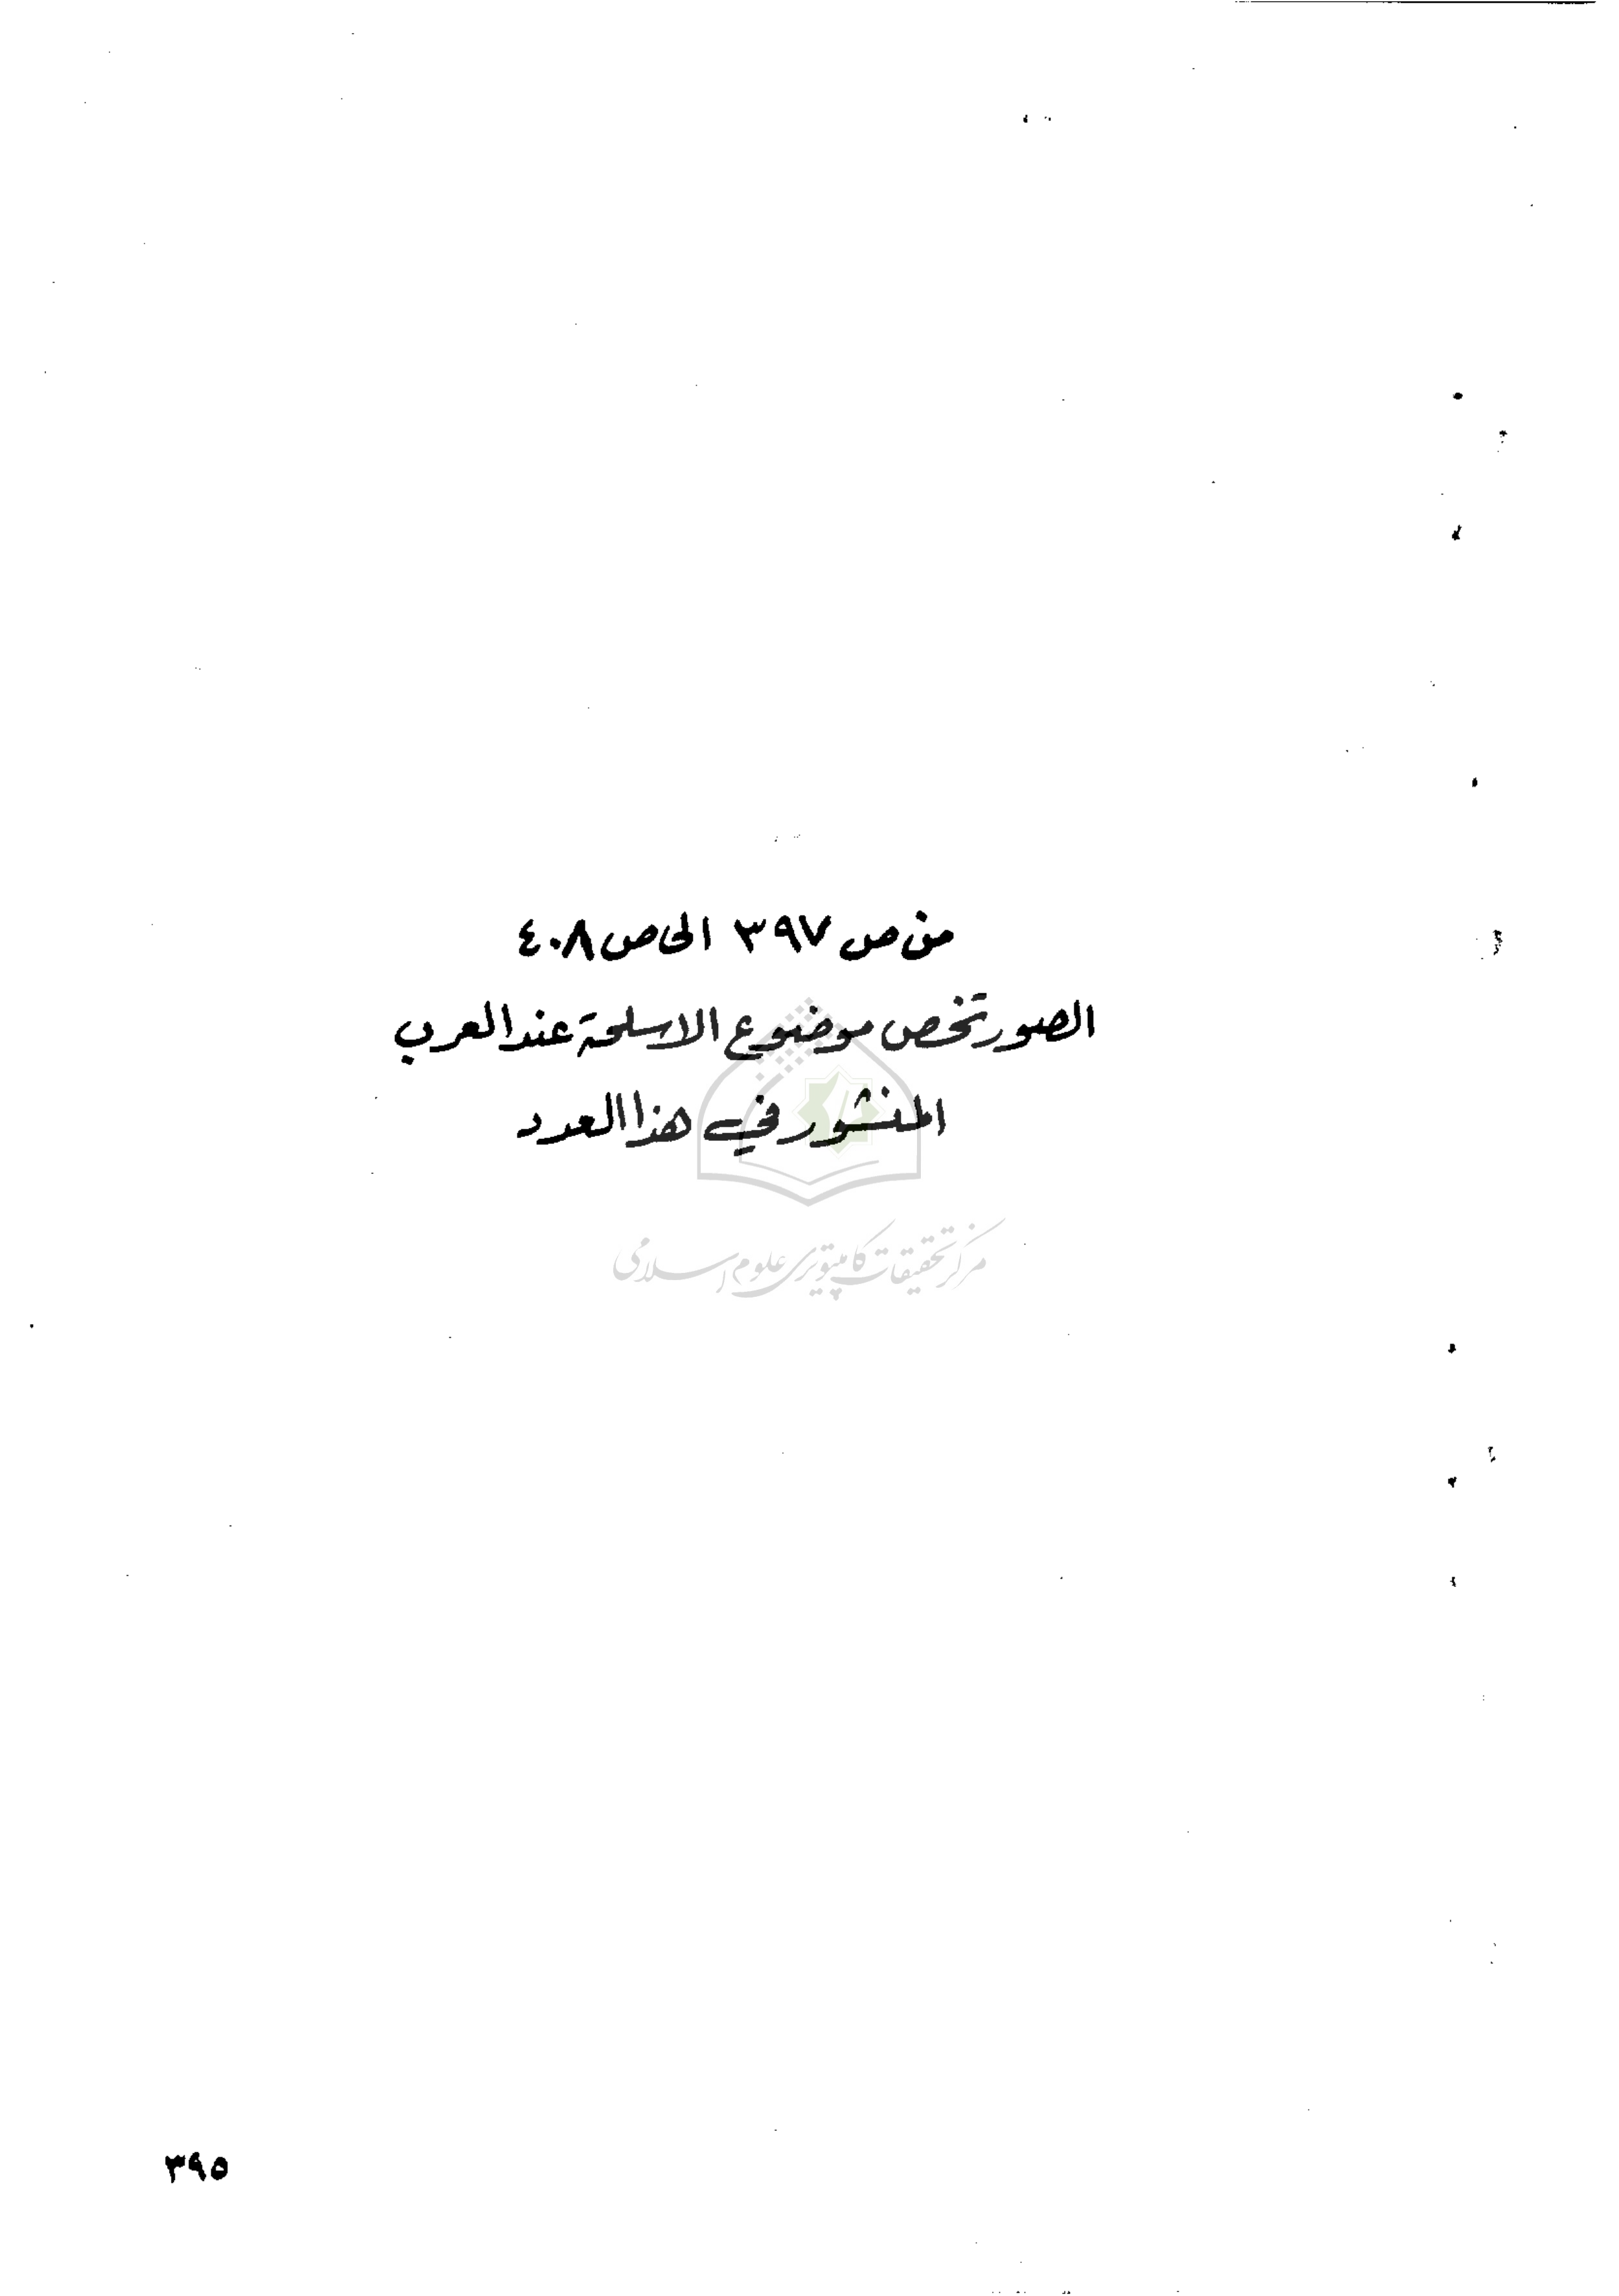 من ص ٣٩٧ الى ص ٤٠٨
الصور تخص موضوع الاسلحة عند العرب
المنشور في هذا العدد
مرکز تحقیقات کامپیوتری علوم اسلامی
٣٩٥